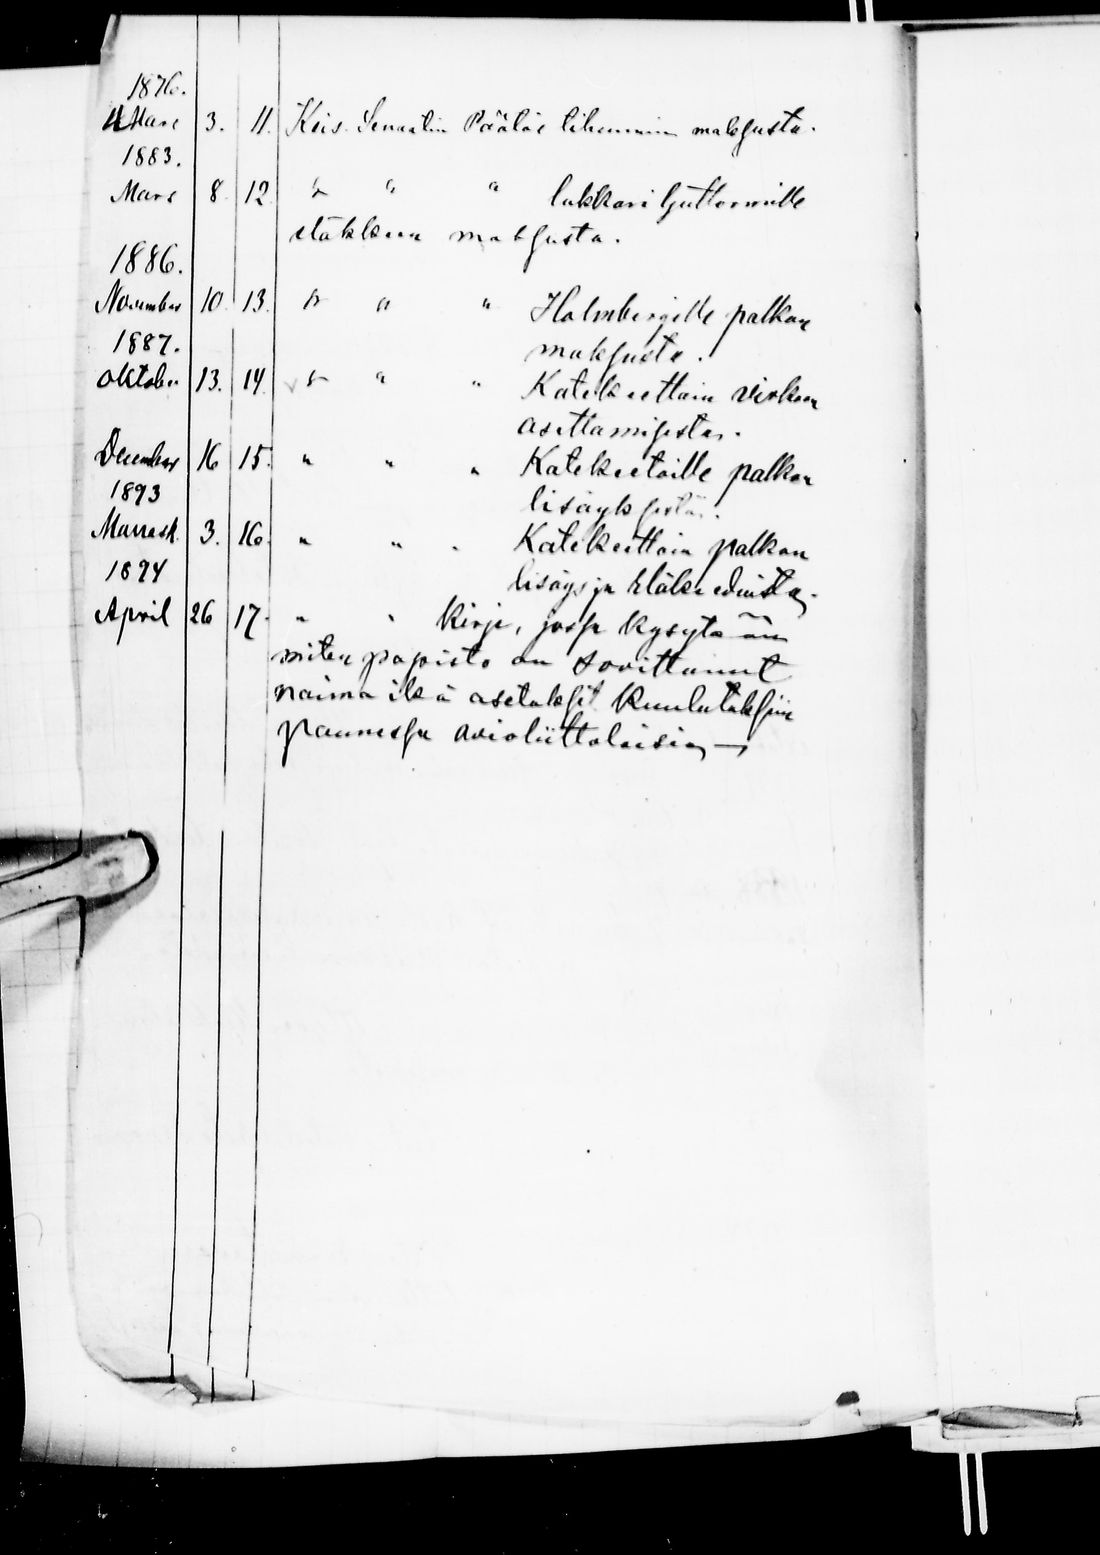 1876.
Mars 3. 11. Keis. Senaatin Päätös lihunnin maksusta.
1883.
Mars 8. 12. " " " lukkari Guttormille
eläkkeen maksusta.
1886.
November 10. 13. " " " Holmbergille palkan
maksusta.
1887.
Oktober 13. 14. " " " Katekeettain virkan
asettamisesta.
December 16 15. " " " Katekeetoille palkan
lisäyksestä.
1893
Marrask. 3. 16. " " " Katekeettain palkan
lisäys ja eläke eduista.
1894
April 26 17. " " Kirje, jossa kysytään
miten papisto on sovittanut
naima ikä asetukset kuulutuksiin
pannessa avioliittolaisia —